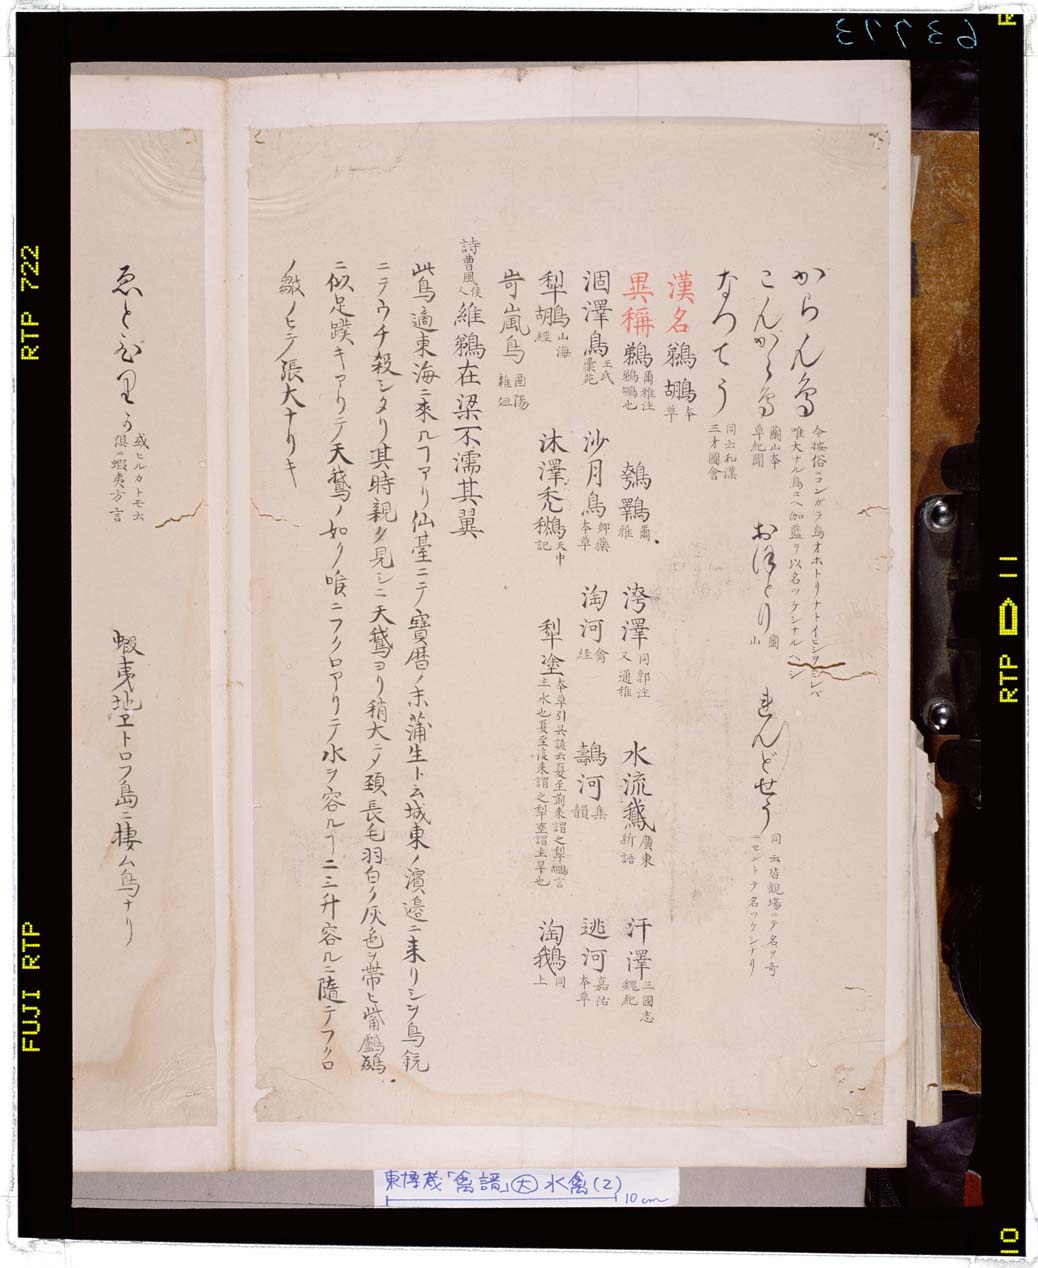 からん鳥
今按俗ニコンガラ鳥オホトリナトイヒシ
唯大ナル鳥ユヘ伽藍ヲ以名ツケシナルヘシ
こんがら鳥 蘭山本草紀聞 おほとり 蘭山 ぜんどせう 同云皆観場ニテ名ヲ奇ニセントテ名ツケシナリ
なつてう 同云和漢三才圖會
漢名 鵜鶘 本草
異稱 鵜 爾雅注 鵜鶘也 爾雅 澤 同郭注 又通雅 水流鵞 廣東新語 汙澤 三國志魏紀
涸澤鳥 王氏彙苑 沙月鳥 郷藥本草 淘河 禽経 河 集韻 逃河 嘉祐本草
犁鶘 山海経 沐澤禿鶖 天中記 犁塗 本草引呉諺云夏至前来謂之犁鶘言主水也夏至後来謂之犁塗謂主旱也 淘鵝 同上
岢嵐鳥 酉陽雜俎
詩曹風候人 維鵜在梁不濡其翼
此鳥適東海ニ来ルヿアリ仙臺ニテ寶暦ノ末蒲生ト云城東ノ濱邉ニ来リシヲ鳥銃
ニテウチ殺シタリ其時親ク見シニ天鵞ヨリ稍大ニ〆頚長毛羽白ク灰色ヲ帯ヒ觜鸕鷀
ニ似足蹼キアリテ天鵞ノ如ク喉ニフクロアリテ水ヲ容ルヿ二三升容ルニ随テフクロ
ノ皺ノヒテ張大ナリキ
ゑとぴりか 或ヒルカトモ云倶ニ蝦夷方言 蝦夷地ヱトロフ島ニ棲ム鳥ナリ
東博蔵「禽譜」大 水禽(2)
10cm
63773
RTP 722
FUJI RTP
RTP 11
10